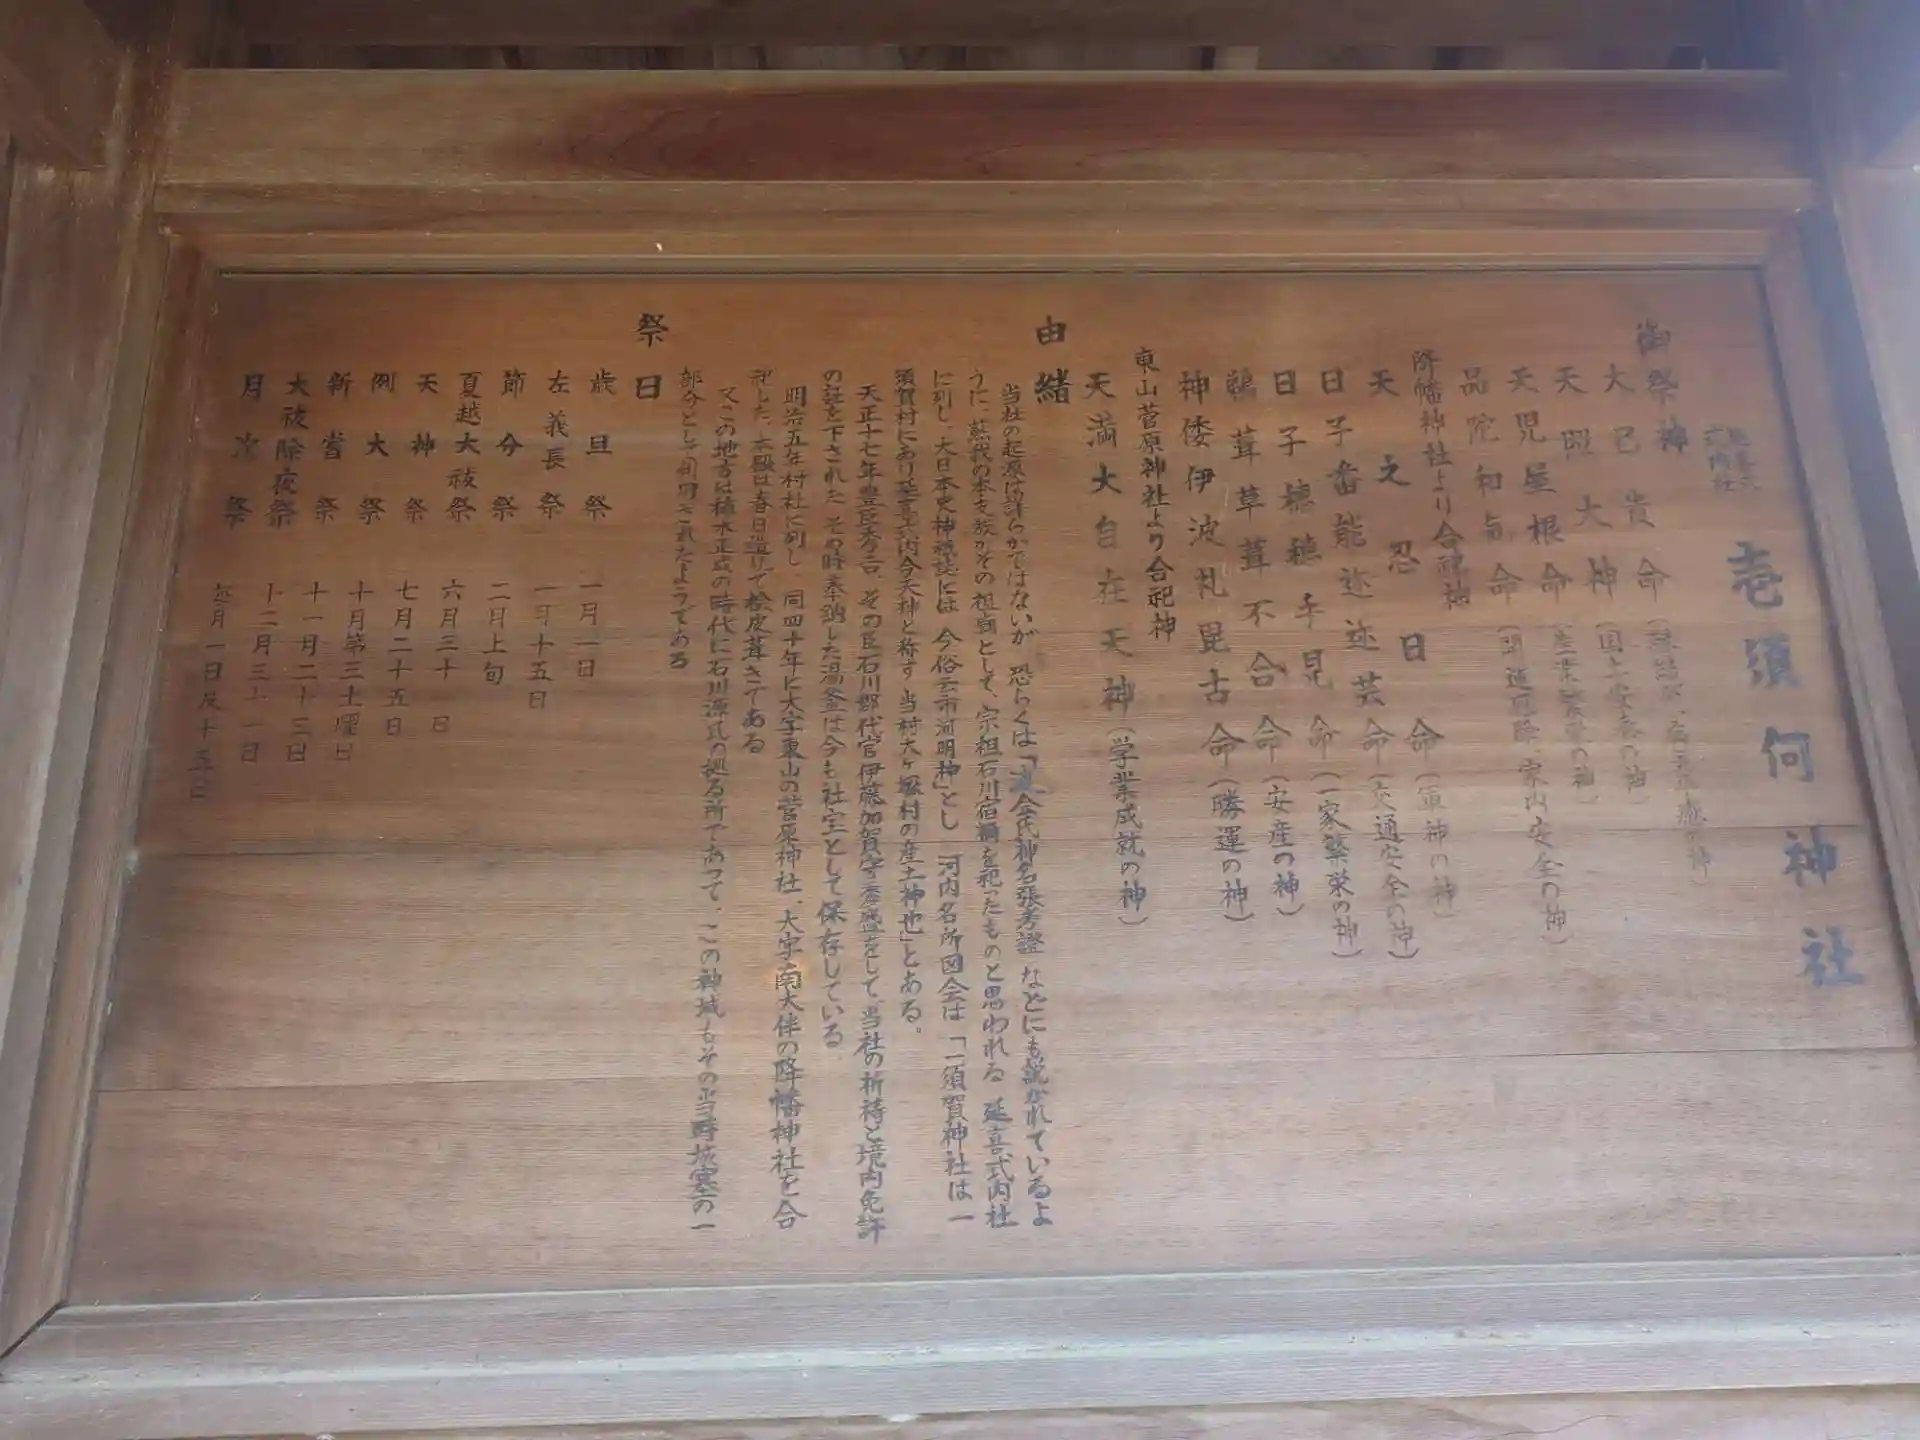 延喜式
式内社
壱須何神社
御祭神
大己貴命(縁結び、
天照大神(国土安泰の神)
天児屋根命(産業繁栄の神)
品陀和気命(開運厄除、家内安全の神)
降幡神社より合祀神
天之忍日命(軍神の神)
日子番能迩迩芸命(交通安全の神)
日子穂穂手見命(一家繁栄の神)
鵜葺草葺不合命(安産の神)
神倭伊波礼毘古命(勝運の神)
東山菅原神社より合祀神
天満大自在天神(学業成就の神)
由緒
当社の起源は詳らかではないが 恐らくは「度会氏神名張考證 などにも説かれているよ
うに、蘇我の本支族がその祖廟として、宗祖石川宿禰を祀ったものと思われる 延喜式内社
に列し、大日本史神祇誌には 今俗云市河明神」とし 河内名所図会は「一須賀神社は一
須賀村にあり延喜式内今天神と称す 当村大ヶ塚村の産土神也」とある。
天正十七年豊臣秀吉、その臣石川郡代官伊藤加賀守秀盛をして、当社の祈祷と境内免許
の証を下された その時奉納した湯釜は今も社宝として保存している
明治五年村社に列し、同四十年に大字東山の菅原神社、大字南大伴の降幡神社を合
祀した、本殿は春日造りで桧皮葺きである
又この地方は楠木正成の時代に石川源氏の拠る所であって、この神域もその当時城塞の一
部分として利用されたようである
祭日
歳旦祭 一月一日
左義長祭 一月十五日
節分祭 二月上旬
夏越大祓祭 六月三十日
天神祭 七月二十五日
例大祭 十月第三土曜日
新嘗祭 十一月二十三日
大祓除夜祭 十二月三十一日
月次祭 毎月一日及十五日